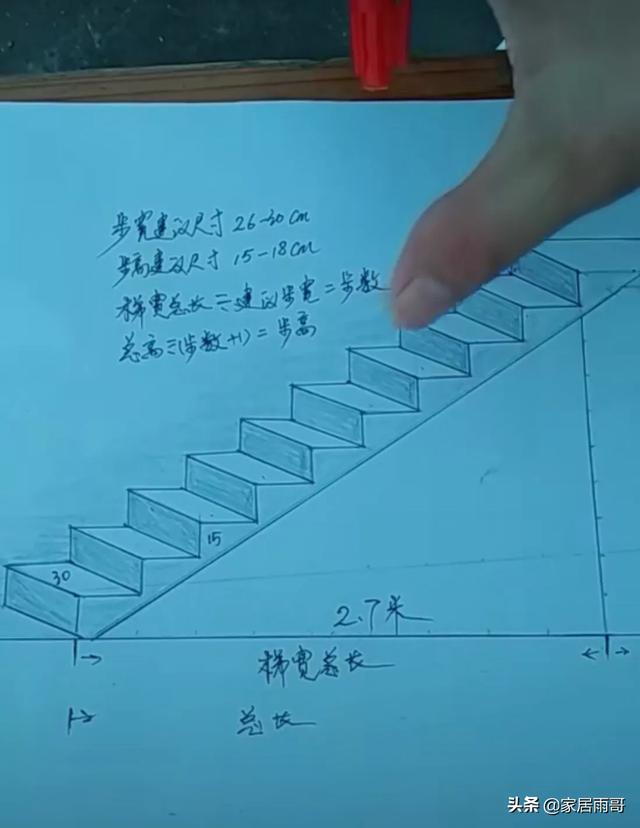 步宽建议尺寸 26-30cm
步高建议尺寸 15-18cm
梯宽总长÷建议步宽=步数
总高÷(步数+1)=步高
15
30
2.7米
梯宽总长
总长
头条 @家居雨哥